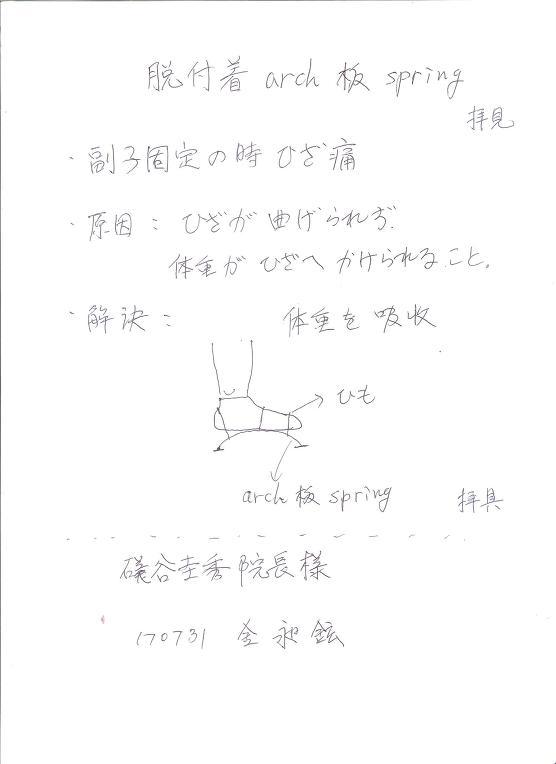 脱付着 arch 板 spring
拝見
・副子固定の時 ひざ 痛
・原因： ひざが 曲げられぢ．
体重が ひざへ かけられる こと。
・解決： 体重を 吸収
ひも
arch 板 spring
拝具
磯谷圭秀 院長 様
170731 金 昶 鉉